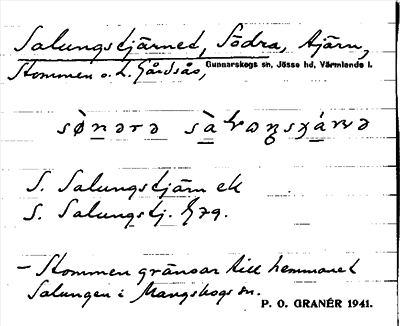 Salungstjärnet, Södra, tjärn,
Stommen o. L. Gårdsås, Gunnarskogs sn, Jösse hd, Värmlands l.
S. Salungstjärn ek
S. Salungstj. Grq.
- Stommen gränsar till hemmanet
Salungen i Mangskogs sn.
P. O. GRANÉR 1941.